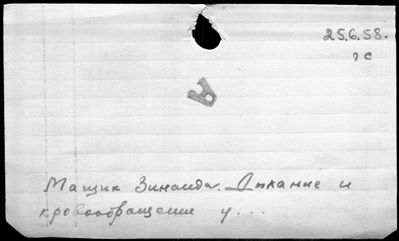 25.6.58.
7С
А
Мащик Зинаида. Дыхание и
кровообращение у...